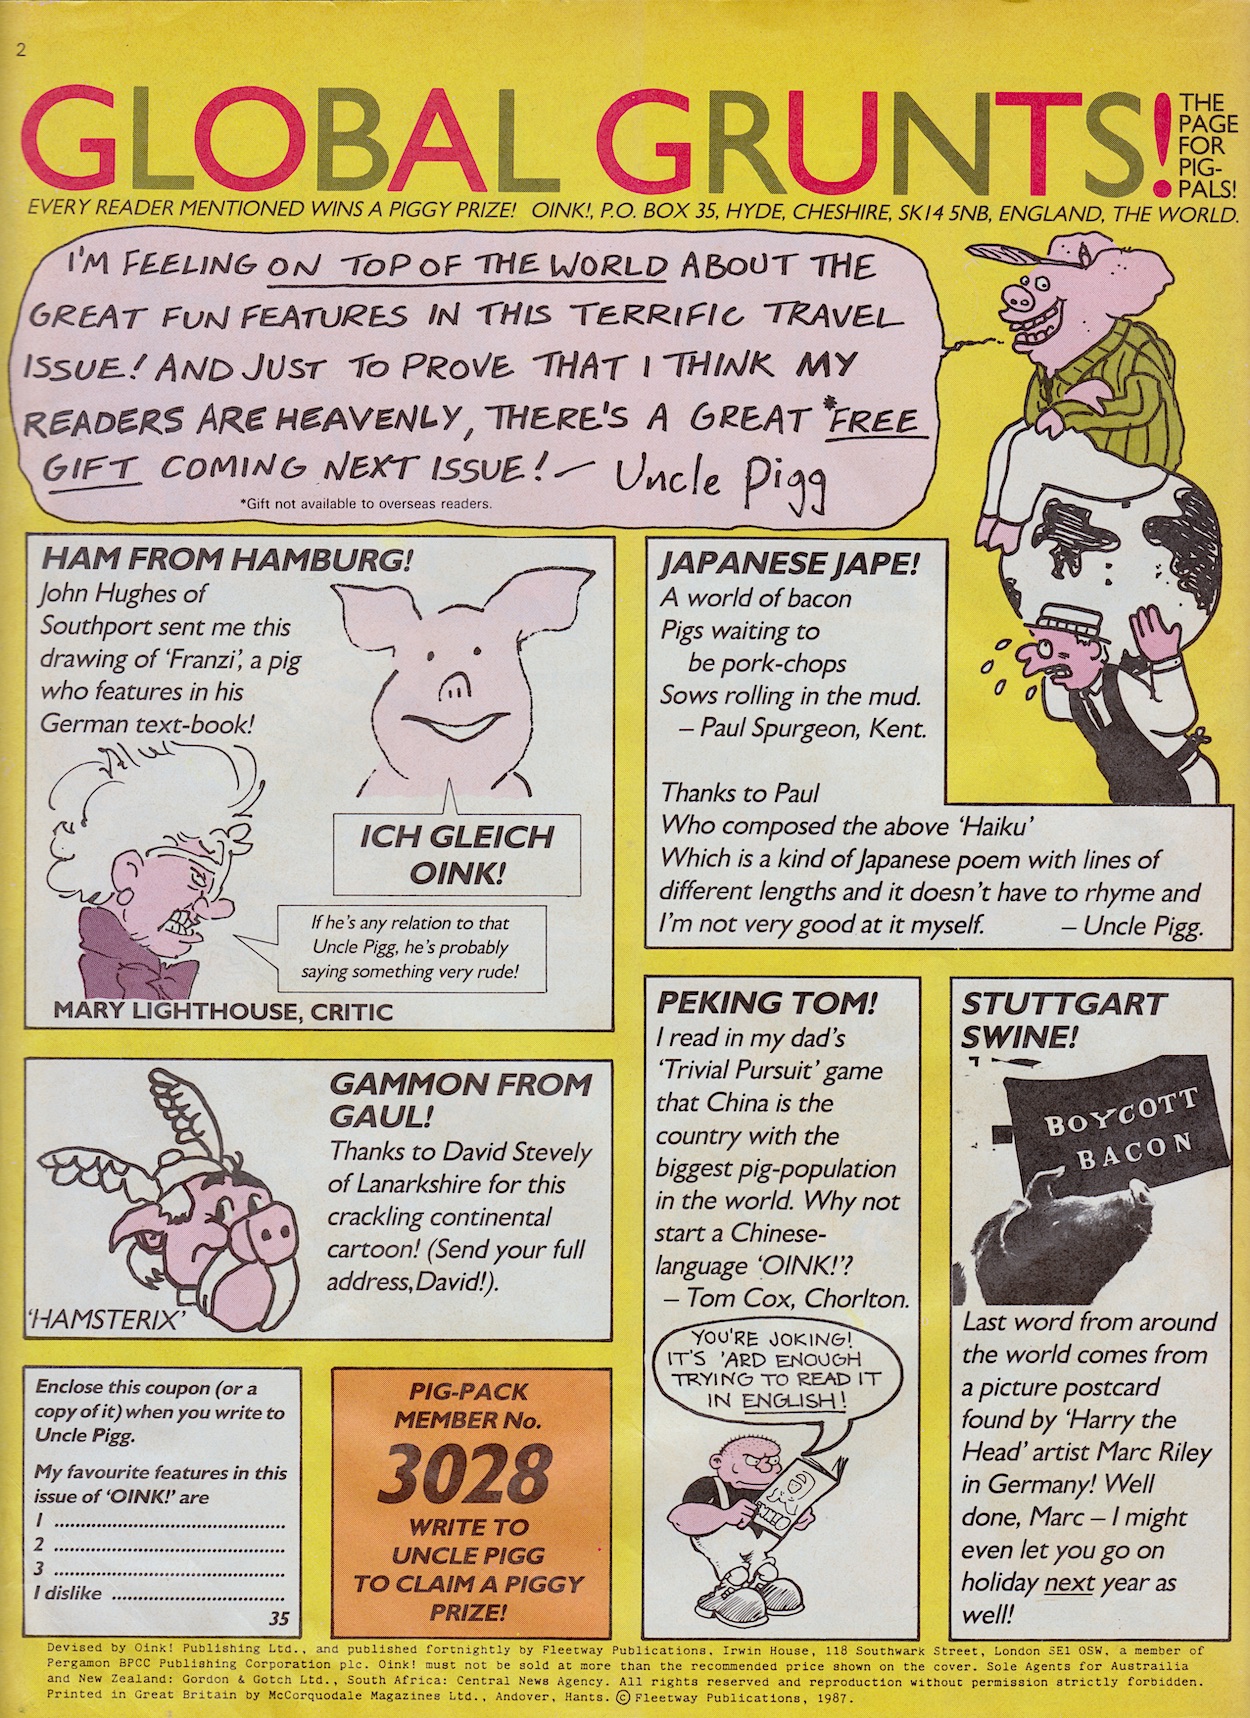 2
GLOBAL GRUNTS!
THE
PAGE
FOR
PIG-
PALS!
EVERY READER MENTIONED WINS A PIGGY PRIZE! OINK!, P.O. BOX 35, HYDE, CHESHIRE, SK14 5NB, ENGLAND, THE WORLD.
I'M FEELING ON TOP OF THE WORLD ABOUT THE
GREAT FUN FEATURES IN THIS TERRIFIC TRAVEL
ISSUE! AND JUST TO PROVE THAT I THINK MY
READERS ARE HEAVENLY, THERE'S A GREAT *FREE
GIFT COMING NEXT ISSUE! — Uncle Pigg
*Gift not available to overseas readers.
HAM FROM HAMBURG!
John Hughes of
Southport sent me this
drawing of 'Franzi', a pig
who features in his
German text-book!
ICH GLEICH
OINK!
If he's any relation to that
Uncle Pigg, he's probably
saying something very rude!
MARY LIGHTHOUSE, CRITIC
JAPANESE JAPE!
A world of bacon
Pigs waiting to
be pork-chops
Sows rolling in the mud.
– Paul Spurgeon, Kent.
Thanks to Paul
Who composed the above 'Haiku'
Which is a kind of Japanese poem with lines of
different lengths and it doesn't have to rhyme and
I'm not very good at it myself. – Uncle Pigg.
GAMMON FROM
GAUL!
Thanks to David Stevely
of Lanarkshire for this
crackling continental
cartoon! (Send your full
address, David!).
'HAMSTERIX'
PEKING TOM!
I read in my dad's
'Trivial Pursuit' game
that China is the
country with the
biggest pig-population
in the world. Why not
start a Chinese-
language 'OINK!'?
– Tom Cox, Chorlton.
YOU'RE JOKING!
IT'S 'ARD ENOUGH
TRYING TO READ IT
IN ENGLISH!
STUTTGART
SWINE!
BOYCOTT
BACON
Last word from around
the world comes from
a picture postcard
found by 'Harry the
Head' artist Marc Riley
in Germany! Well
done, Marc – I might
even let you go on
holiday next year as
well!
Enclose this coupon (or a
copy of it) when you write to
Uncle Pigg.
My favourite features in this
issue of 'OINK!' are
1 ........................................
2 ........................................
3 ........................................
I dislike ..............................
35
PIG-PACK
MEMBER No.
3028
WRITE TO
UNCLE PIGG
TO CLAIM A PIGGY
PRIZE!
Devised by Oink! Publishing Ltd., and published fortnightly by Fleetway Publications, Irwin House, 118 Southwark Street, London SE1 OSW, a member of
Pergamon BPCC Publishing Corporation plc. Oink! must not be sold at more than the recommended price shown on the cover. Sole Agents for Austrailia
and New Zealand: Gordon & Gotch Ltd., South Africa: Central News Agency. All rights reserved and reproduction without permission strictly forbidden.
Printed in Great Britain by McCorquodale Magazines Ltd., Andover, Hants. © Fleetway Publications, 1987.